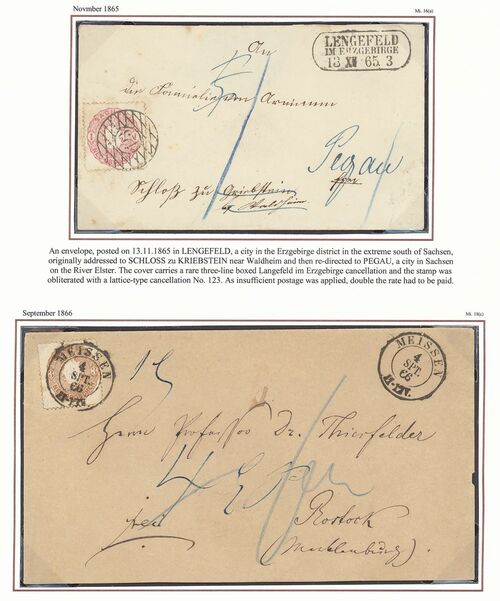 Novmber 1865
Mi. 16(a)
LENGEFELD
IM ERZGEBIRGE
13 XI 65. 3
An
die Familie von Arnimm
5
Pegau
Schloß zu Griebstein
by Waldheim
An envelope, posted on 13.11.1865 in LENGEFELD, a city in the Erzgebirge district in the extreme south of Sachsen,
originally addressed to SCHLOSS zu KRIEBSTEIN near Waldheim and then re-directed to PEGAU, a city in Sachsen
on the River Elster. The cover carries a rare three-line boxed Langefeld im Erzgebirge cancellation and the stamp was
obliterated with a lattice-type cancellation No. 123. As insufficient postage was applied, double the rate had to be paid.
September 1866
Mi. 18(c)
MEISSEN
4
SPT.
66
II-IIV.
MEISSEN
4
SPT.
66
II-IIV.
Herrn Professor Dr. Thierfelder
Rostock
(Mecklenburg).